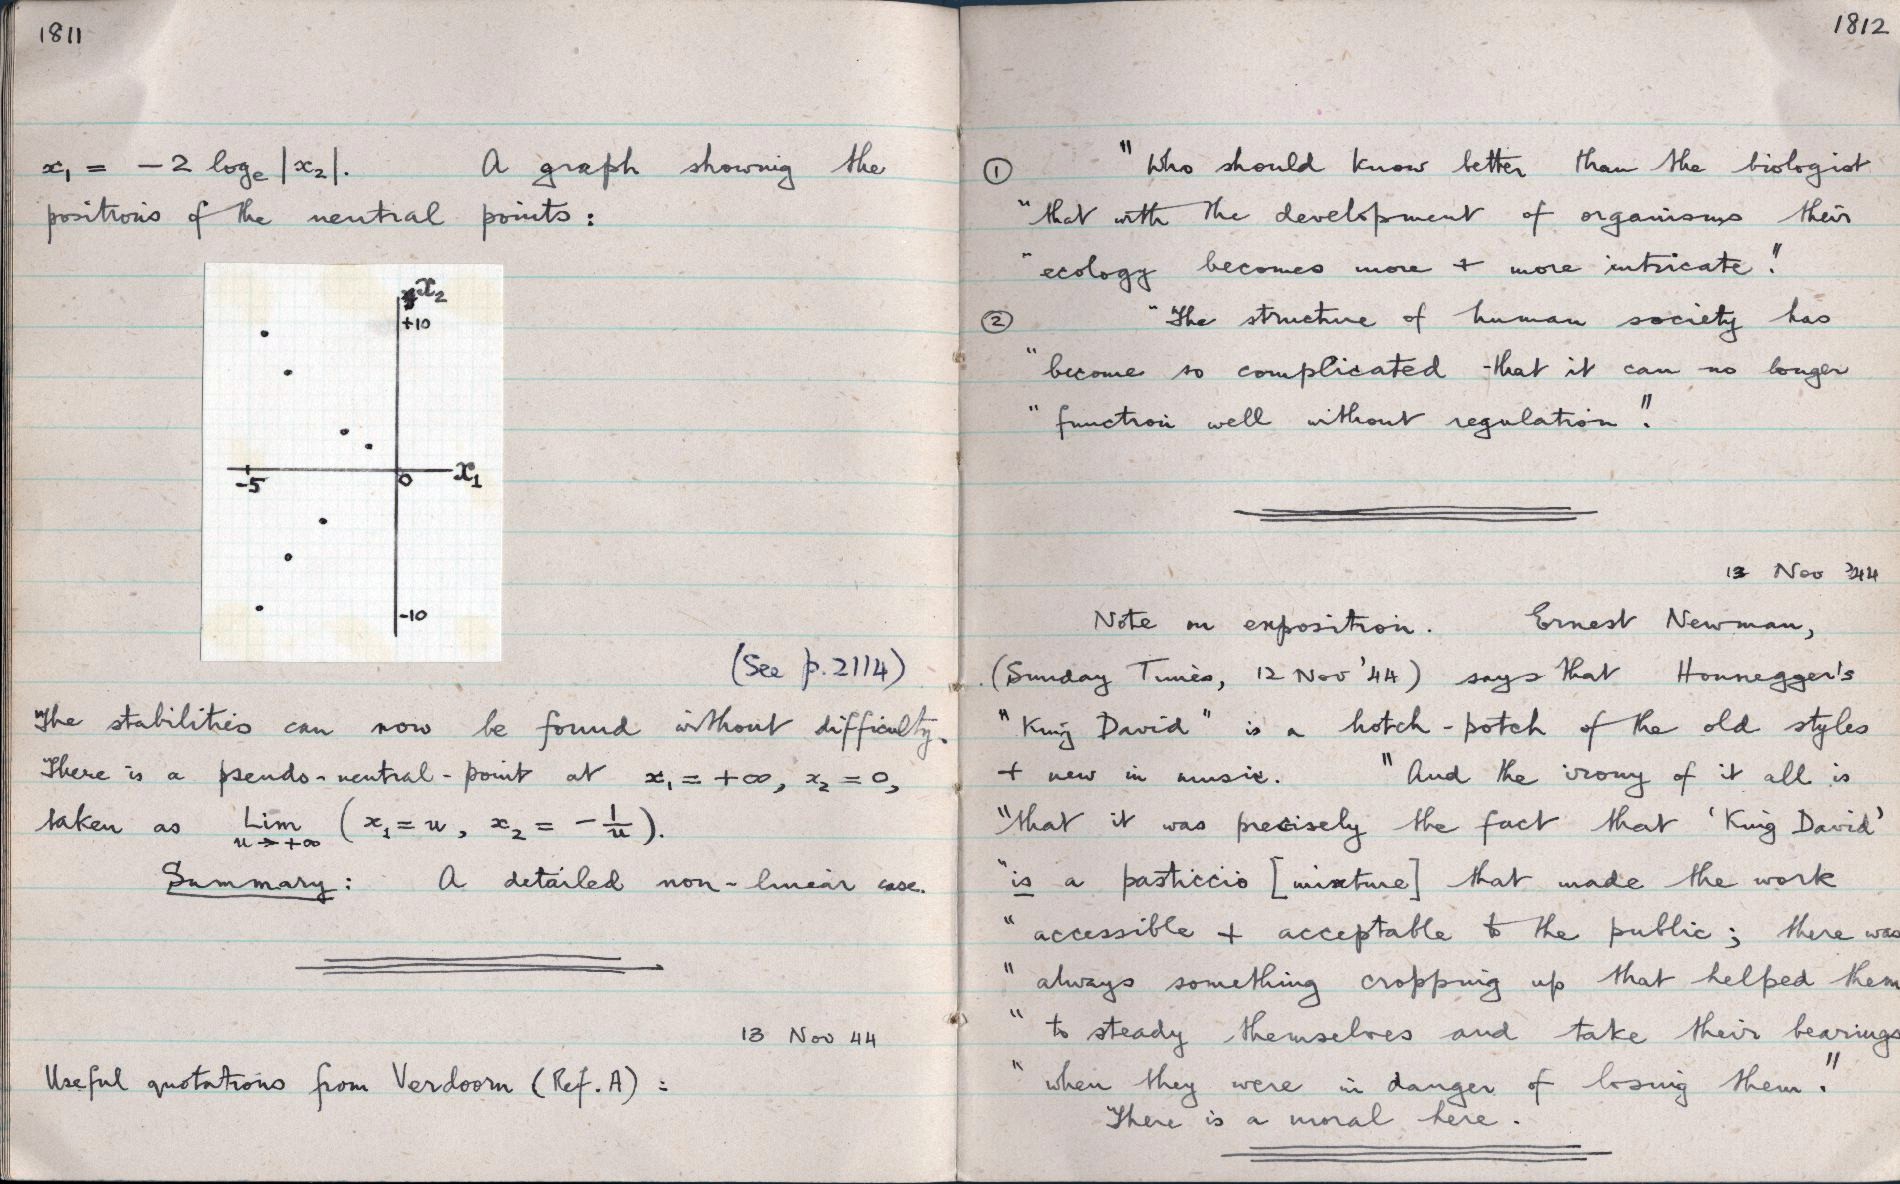 1811
x₁ = −2 logₑ |x₂|. A graph showing the
positions of the neutral points:
x₂
+10
-5
0
x₁
-10
(See p. 2114)
The stabilities can now be found without difficulty.
There is a pseudo-neutral-point at x₁ = +∞, x₂ = 0,
taken as Lim (x₁ = u, x₂ = −1/u).
u→+∞
Summary: A detailed non-linear case.
13 Nov 44
Useful quotations from Verdoorn (Ref. A):
1812
① "Who should know better than the biologist
"that with the development of organisms their
"ecology becomes more + more intricate."
② "The structure of human society has
"become so complicated that it can no longer
"function well without regulation".
13 Nov '44
Note on exposition. Ernest Newman,
(Sunday Times, 12 Nov '44) says that Honnegger's
"King David" is a hotch-potch of the old styles
+ new in music. "And the irony of it all is
"that it was precisely the fact that 'King David'
"is a pasticcio [mixture] that made the work
"accessible + acceptable to the public; there was
"always something cropping up that helped them
"to steady themselves and take their bearings
"when they were in danger of losing them."
There is a moral here.